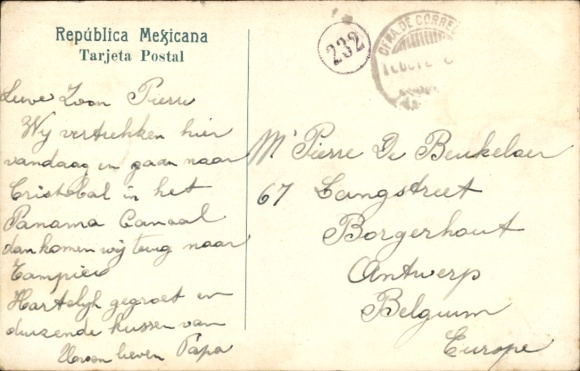 República Mexicana
Tarjeta Postal
232
OFNA. DE CORREO
Lieve Zoon Pierre
Wij vertrekken hier
vandaag en gaan naar
Cristobal in het
Panama Canaal
dan komen wij terug naar
Tampico
Hartelijk gegroet en
duizende kussen van
Uwen lieven Papa
Mr Pierre De Beukelaer
67 Langstreet
Borgerhout
Antwerp
Belgium
Europe